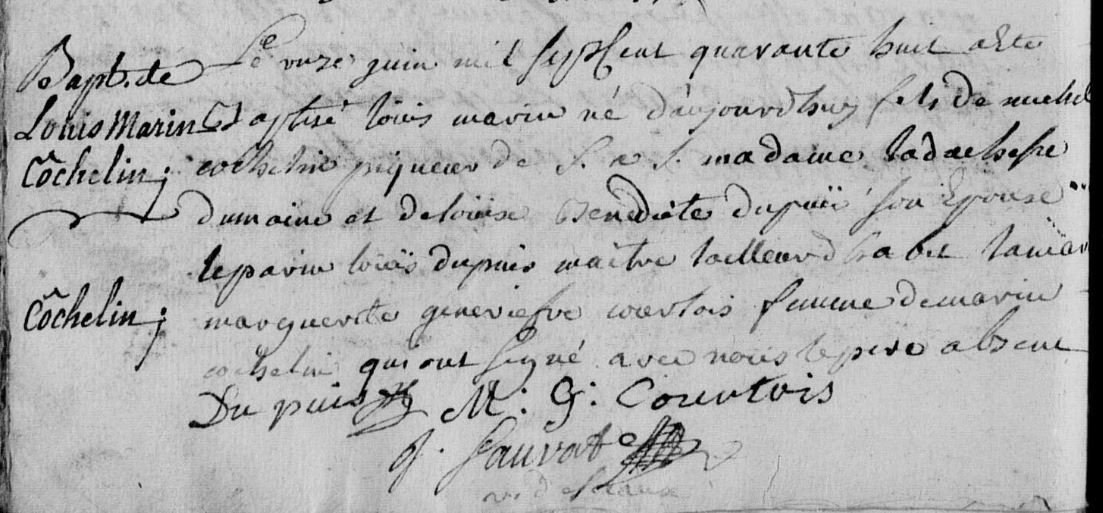 Bapt. de
Louis Marin
Côchelin;
Côchelin;
Le onze juin mil sept cent quarante huit a Ete
Baptisé loüis marin né d'aujourdhuy fils de michel
cochelin piqueur de S. a S. madame la dachesse
dumaine et de loüise Benedicte dupuis son Epouse
le parin loüis dupuis maitre tailleur d'habit la mar
marguerite geneviefve courtois femme de marin
cochelin qui ont signé avec nous le pere absent
Du puis M: G: Courtois
Sauvat